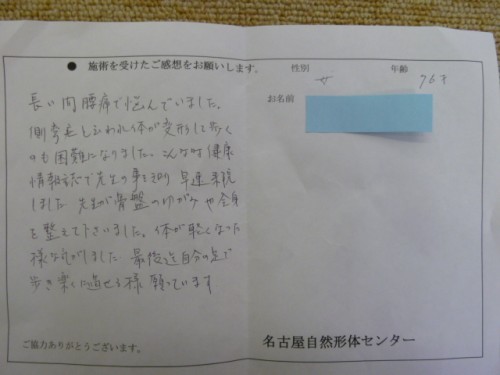 ● 施術を受けたご感想をお願いします。
性別 女
年齢 76才
お名前
長い間腰痛で悩んでいました。
側弯症といわれ体が変形して歩く
のも困難になりました。こんな時健康
情報誌で先生の事を知り早速来院
しました 先生が骨盤のゆがみや全身
を整えて下さいました。体が軽くなった
様な気がしました 最後迄自分の足で
歩き楽に過せる様願っています
ご協力ありがとうございます。
名古屋自然形体センター